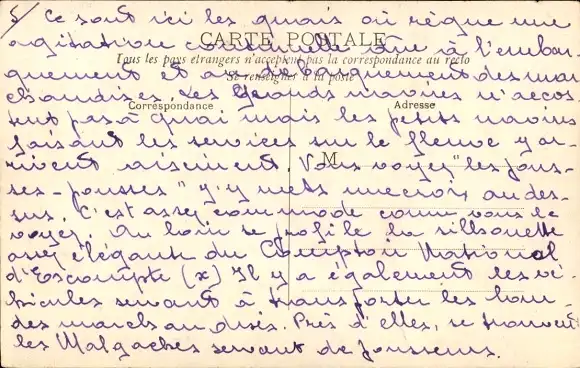 5/ Ce sont ici les quais où règne une
CARTE POSTALE
agitation continuelle due à l'embar-
Tous les pays étrangers n'acceptent pas la correspondance au recto
Se renseigner à la poste
quement et au débarquement des mar
chandises. Les grands navires n'accos
Correspondance
Adresse
tent pas à quai mais les petits navires
faisant les services sur le fleuve y ar-
rivent aisément. Vous voyez "les pous-
M
ses-pousses" j'y mets une croix au des-
sus. C'est assez commode comme vous le
voyez. Au loin se profile la silhouette
assez élégante du Comptoir National
d'Escompte (x) Il y a également les vé-
hicules servant à transporter les lour-
des marchandises. Près d'elles, se trouvent
les Malgaches servant de pousseurs.